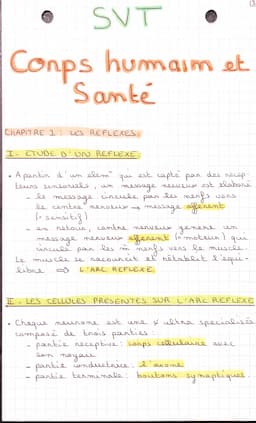 SVT
Corps humain et
Santé
CHAPITRE 1 : LES REFLEXES.
I - ETUDE D'UN REFLEXE
• A partir d'un elem^t qui est capté par des recep-
teurs sensoriels, un message nerveux est élaboré
- le message circule par les nerfs vers
le centre nerveux → message afférent
(= sensitif)
- en retour, centre nerveux génère un
message nerveux efferent (= moteur) qui
circule par les m̄ nerfs vers le muscle.
Le muscle se racourcit et rétablit l'équi-
libre ⇒ L'ARC REFLEXE.
II - LES CELLULES PRESENTES SUR L'ARC REFLEXE
• Chaque neurone est une ultra specialisée
composé de trois parties :
- partie receptive : corps cellulaire avec
son noyau
- partie conductrice : l'axone
- partie terminale : boutons synaptiques.